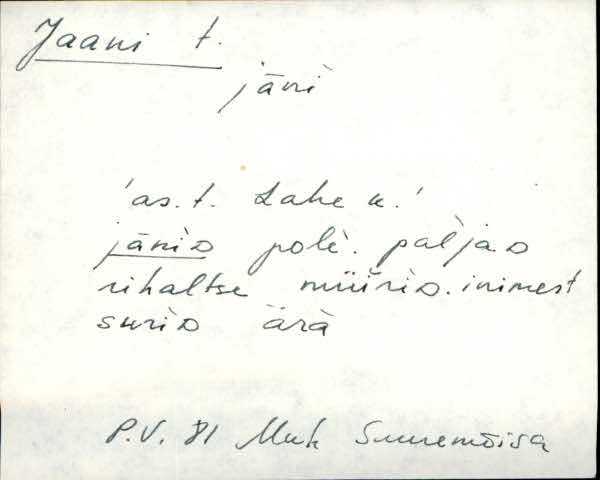 Jaani t.
jāni
'as. t. Lahe k.'
jāniɒ polè. paljaɒ
rihaltse müüriɒ. inimest
suriɒ ärà
P.V. 81 Muh Suuremõisa